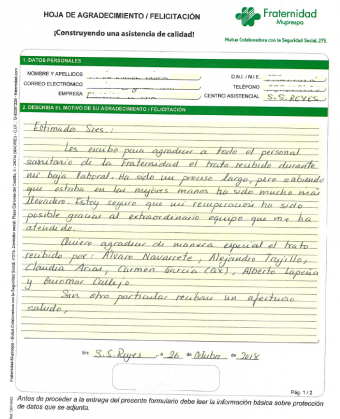 HOJA DE AGRADECIMIENTO / FELICITACIÓN
Fraternidad
Muprespa
¡Construyendo una asistencia de calidad!
Mutua Colaboradora con la Seguridad Social, 275.
1. DATOS PERSONALES
NOMBRE Y APELLIDOS
D.N.I. / N.I.E.
CORREO ELECTRÓNICO
TELÉFONO
EMPRESA
CENTRO ASISTENCIAL S.S. REYES
2. DESCRIBA EL MOTIVO DE SU AGRADECIMIENTO / FELICITACIÓN
Estimados Sres.:
Les escribo para agradecer a todo el personal
sanitario de la Fraternidad el trato recibido durante
mi baja laboral. Ha sido un proceso largo, pero sabiendo
que estaba en las mejores manos ha sido mucho más
llevadero. Estoy seguro que mi recuperación ha sido
posible gracias al extraordinario equipo que me ha
atendido.
Quiero agradecer de manera especial el trato
recibido por: Alvaro Navarrete, Alejandro Trujillo,
Claudia Arias, Carmen García Cax), Alberto Lapeña
y Guiomar Callejo.
Sin otro particular reciban un afectuoso
saludo,
En S.S. Reyes, a 26 de Octubre de 2018
Pág. 1 / 2
Antes de proceder a la entrega del presente formulario debe leer la información básica sobre protección
de datos que se adjunta.